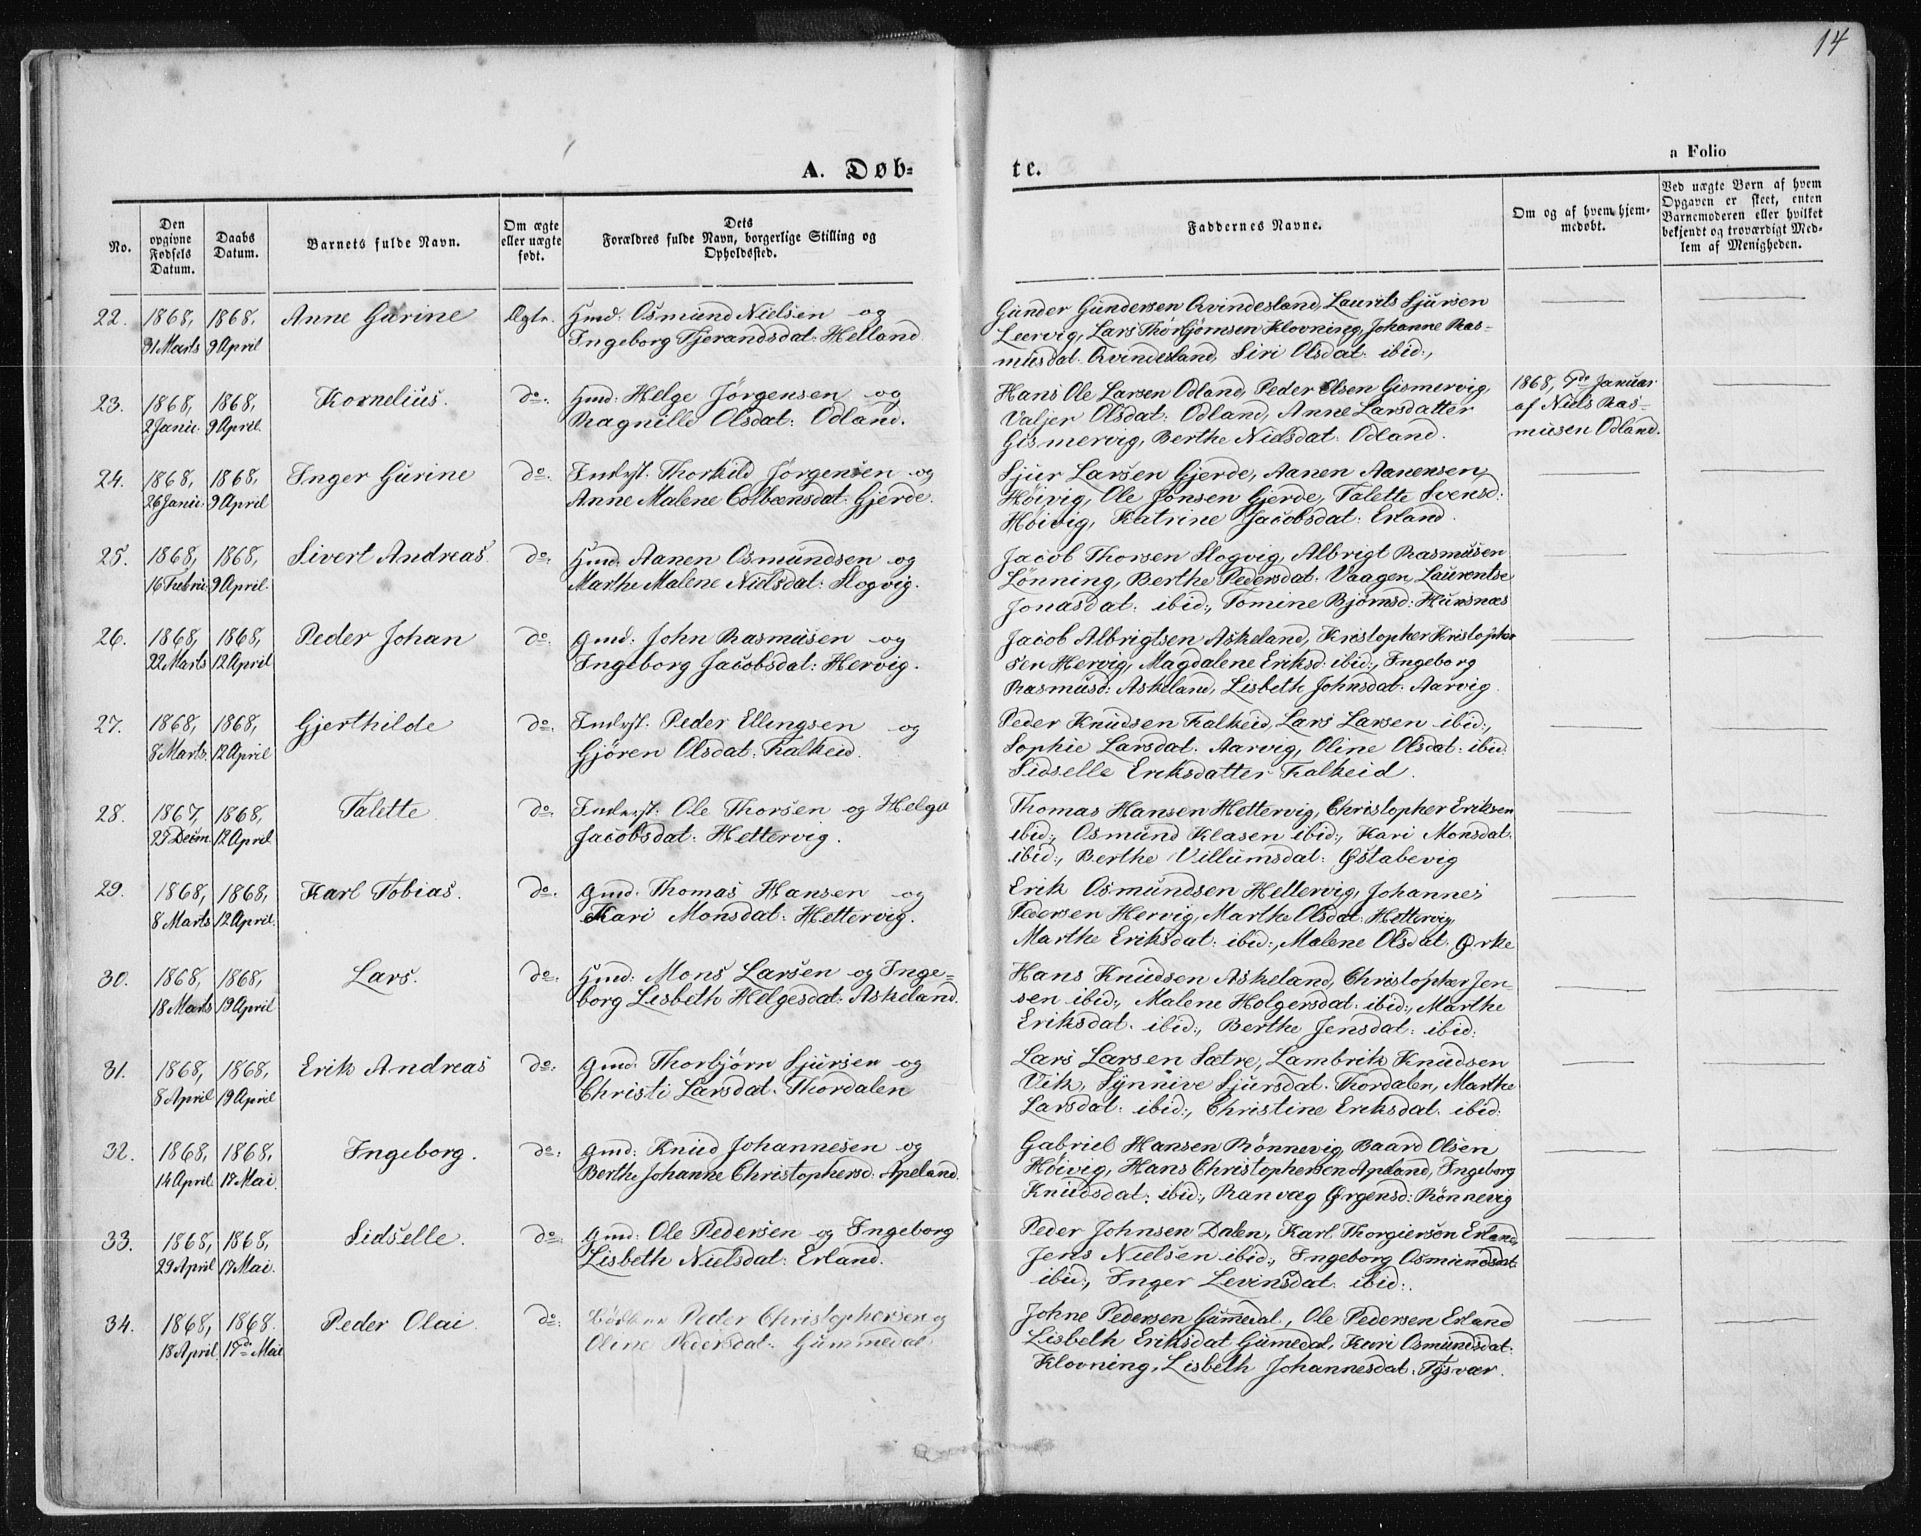 14
a Folio
A. Døb-
te.
No.
Den opgivne Fødsels Datum.
Daabs Datum.
Barnets fulde Navn.
Om ægte eller uægte født.
Dets Forældres fulde Navn, borgerlige Stilling og Opholdssted.
Faddernes Navne.
Om og af hvem hjem-
medøbt.
Ved uægte Børn af hvem
Opgaven er skeet, enten
Barnemoderen eller hvilket
bekjendt og troværdigt Med-
lem af Menigheden.
22. 1868, 1868, Anne Gurine Ægte. Hmd: Osmund Nielsen og
31 Marts 9 April Ingeborg Tjerandsdat: Helland
Gunder Gundersen Qvindesland, Laurits Sjursen
Leervig, Lars Thorbjørnsen Klovning, Johanne Ras-
musdat. Qvindesland, Siri Olsdat: ibid:,
23. 1868, 1868, Kornelius. do. Hmd: Helge Jørgensen og
2 Janu: 9 April. Ragnille Olsdat: Odland.
Hans Ole Larsen Odland, Peder Olsen Gismervig,
Valjer Olsdat: Odland, Anne Larsdatter
Gismervig, Berthe Nielsdat: Odland.
1868, 7de Januar
af Niels Ras-
musen Odland.
24. 1868, 1868, Inger Gurine do. Inderst. Thorkild Jørgensen og
26 Janu: 9 April Anne Malene Colbensdat: Gjerde.
Sjur Larsen Gjerde, Aanen Aanensen,
Høivig, Ole Jonsen Gjerde, Talette Svensd:
Høivig, Katrine Jacobsdat: Erland.
25. 1868, 1868, Sivert Andreas do. Hmd: Aanen Osmundsen og
16 Febru: 9 April. Marthe Malene Nielsdat: Slogvig.
Jacob Thorsen Slogvig, Albrigt Rasmusen
Lønning, Berthe Pedersdat: Vaagen, Laurentse
Jonasdat: ibid:, Tomine Bjørnsd: Hunsnæs
26. 1868, 1868, Peder Johan do. Gmd: John Rasmusen og
22 Marts 12 April Ingeborg Jacobsdat: Hervig.
Jacob Albrigtsen Askeland, Kristopher Kristopher
sen Hervig, Magdalene Eriksd: ibid:, Ingeborg
Rasmusd: Askeland, Lisbeth Johnsdat: Aarvig.
27. 1868, 1868, Gjerthilde do. Inderst. Peder Ellingsen og
8 Marts. 12 April Gjøren Olsdat: Falkeid.
Peder Knudsen Falkeid, Lars Larsen ibid:,
Sophie Larsdat: Aarvig, Oline Olsdat: ibid:
Sidselle Eriksdatter Falkeid.
28. 1867, 1868, Talette. do. Inderst. Ole Thorsen og Helga
Decm. 12 April Jacobsdat: Hettervig.
Thomas Hansen Hettervig, Christopher Eriksen
ibid:, Osmund Klasen ibid:, Kari Monsdat:
ibid:, Berthe Villumsdat: Østabøvig
29. 1868, 1868, Karl Tobias. do. Gmd: Thomas Hansen og
8 Marts 12 April. Kari Monsdat: Hettervig.
Erik Osmundsen Hettervig, Johannes
Pedersen Hervig, Marthe Olsdat: Hettervig,
Marthe Eriksdat: ibid:, Malene Olsdat: Ørke
30. 1868, 1868, Lars. do. Hmd: Mons Larsen og Inge-
18 Marts 19 April borg Lisbeth Helgesdat: Askeland.
Hans Knudsen Askeland, Christopher Jen-
sen ibid:, Malene Holgersdat: ibid:, Marthe
Eriksdat: ibid:, Berthe Jensdat: ibid:
31. 1868, 1868, Erik Andreas do. Gmd: Thorbjørn Sjursen og
8 April 19 April Christi Larsdat: Thordalen
Lars Larsen Sætre, Lambrik Knudsen
Vik, Synnive Sjursdat: Thordalen, Marthe
Larsdat: ibid:, Christine Eriksdat: ibid:
32. 1868, 1868, Ingeborg. do. Gmd: Knud Johannesen og
14 April. 17 Mai. Berthe Johanne Christophersd: Apeland.
Gabriel Hansen Rønnevig, Baard Olsen
Høivig, Hans Christophersen Apeland, Ingeborg
Knudsdat: ibid:, Ranvæg Ørgensd: Rønnevig
33. 1868, 1868, Sidselle. do. Gmd: Ole Pedersen og Ingeborg
29 April 17 Mai. Lisbeth Nielsdat: Erland.
Peder Johnsen Dalen, Karl Thorgiersøn Erland,
Jens Nielsen ibid:, Ingeborg Osmundsdat
ibid:, Inger Levinsdat: ibid:.
34. 1868, 1868. Peder Olai. do. Peder Christophersen og
18 April. 17de Mai Oline Pedersdat: Gummedal.
Johne Pedersen Gumedal, Ole Pedersen Erland
Lisbeth Eriksdat Gumedal, Kari Osmundsdat:
Klovning, Lisbeth Johannesdat: Tysvær.